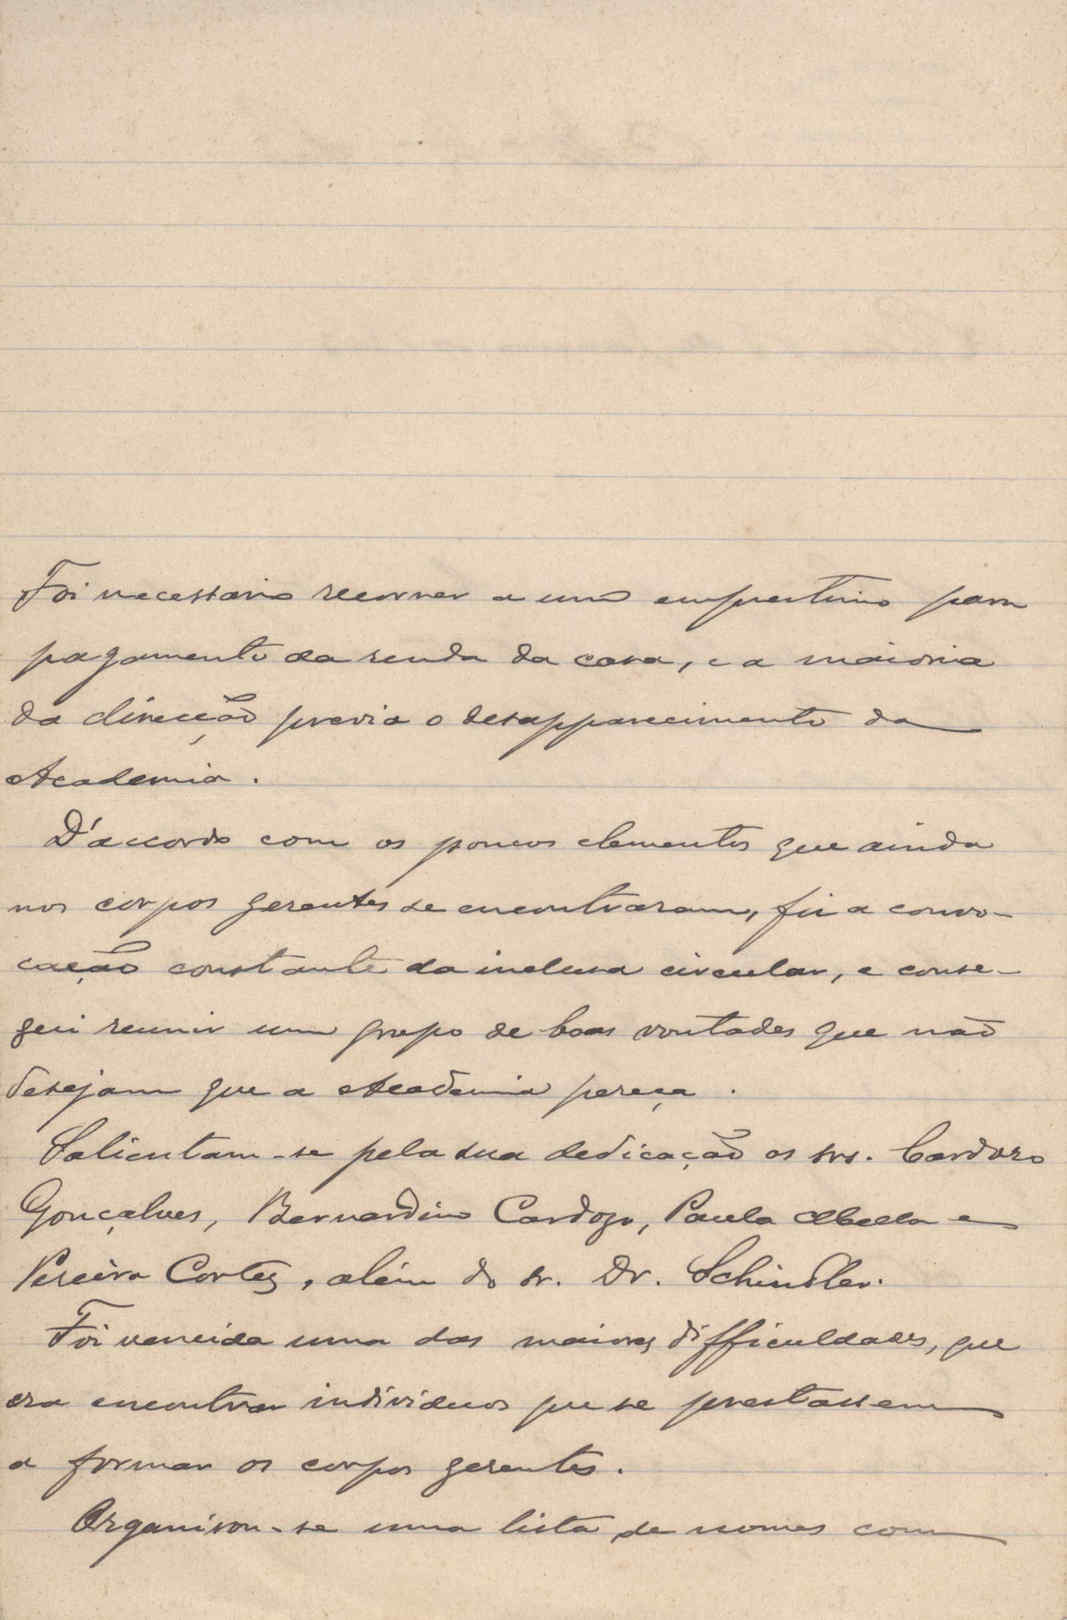 Foi necessario recorrer a um emprestimo para
pagamento da renda da casa, e a maioria
da direcção previa o desapparecimento da
Academia.
D'accordo com os poucos elementos que ainda
nos corpos gerentes se encontraram, fiz a convo-
cação constante da inclusa circular, e conse-
gui reunir um grupo de boas vontades que não
desejam que a Academia pereça.
Salientam-se pela sua dedicação os srs. Cardozo
Gonçalves, Bernardino Cardozo, Paula e
Pereira Cortez, além do sr. Dr. Schindler.
Foi vencida uma das maiores difficuldades, que
era encontrar individuos que se prestassem
a formar os corpos gerentes.
Organisou-se uma lista de nomes com